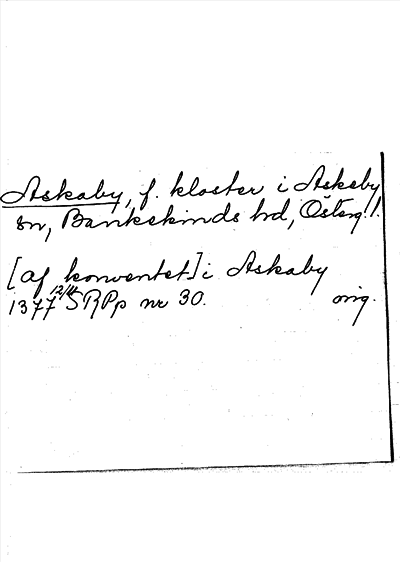 Askaby, f. kloster i Askeby
sn, Bankekinds hd, Österg. l.
[af konventet] i Askaby
1377 12/11 SRPp nr 30. orig.